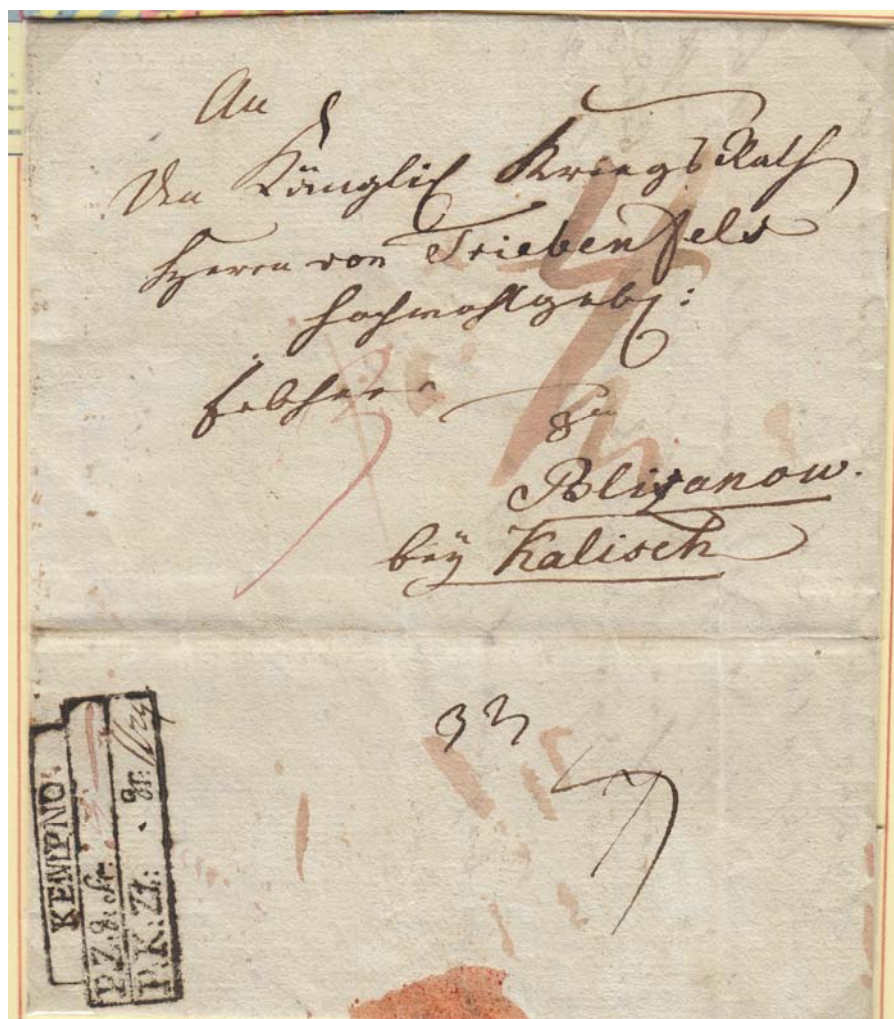 An
Den Königlich Kriegs Rath
Herrn von Triebenfels
Hochwohlgeb:
Erbherr
zu
Blizanow.
bey Kalisch
KEMPNO.
P.Z.g.Sr.
P.K.Zł: gr: